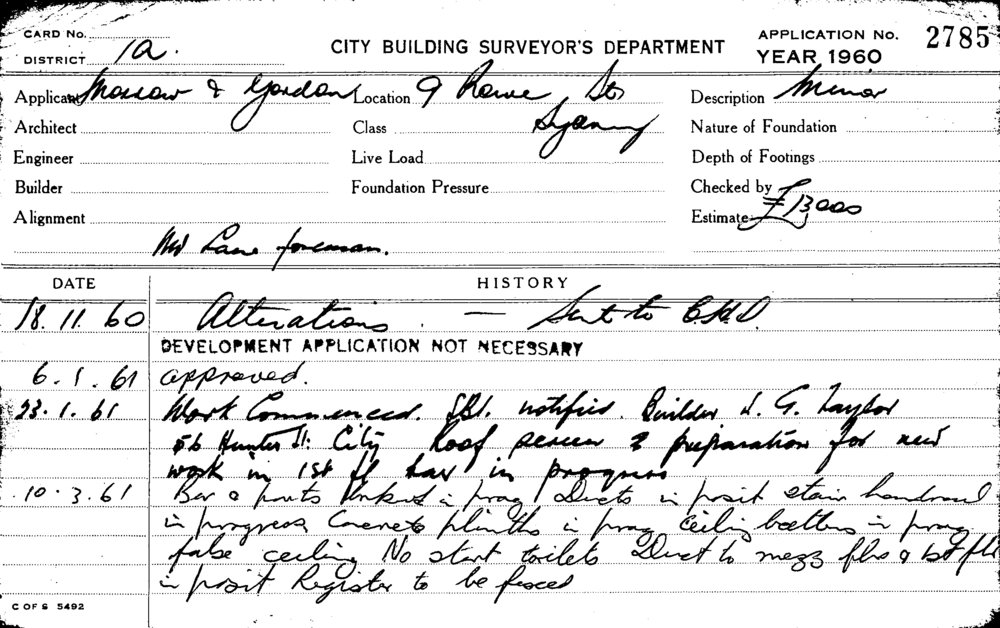 CARD No.
DISTRICT 1a.
CITY BUILDING SURVEYOR'S DEPARTMENT
APPLICATION No. 2785
YEAR 1960
Applicant Morrow & Gordon Location 9 Rowe St Description Minor
Architect Class Sydney Nature of Foundation
Engineer Live Load Depth of Footings
Builder Foundation Pressure Checked by
Alignment Estimate £13,000
Mr Lane foreman.
DATE HISTORY
18.11.60 Alterations. — Sent to
DEVELOPMENT APPLICATION NOT NECESSARY
6.1.61 approved.
23.1.61 Work Commenced. notified. Builder G. Taylor
56 Hunter St. City Roof screen & preparation for new
work in 1st fl bar in progress
10.3.61 Bar in prog Ducts in posit stair handrail
in progress Concrete plinths in prog Ceiling battens in prog
false ceiling No start toilets Duct to mezz flrs & 1st flr
in posit Register to be fixed
C OF S 5492